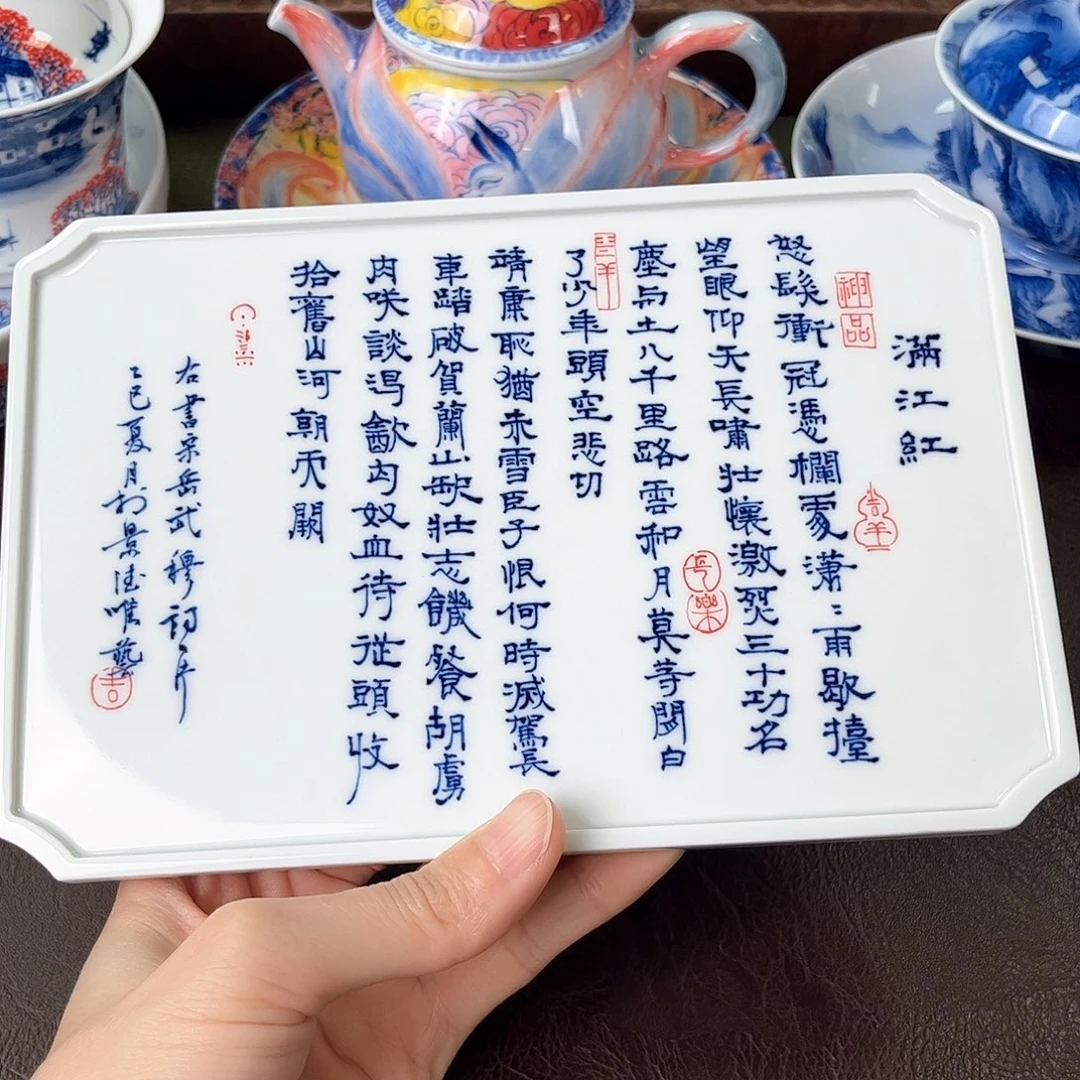 滿江紅
神品
吉羊
怒髮衝冠憑欄處瀟〻雨歇擡
望眼仰天長嘯壯懷激烈三十功名
長樂
塵与土八千里路雲和月莫等閒白
了少年頭空悲切
靖康恥猶未雪臣子恨何時滅駕長
車踏破賀蘭山缺壯志饑餐胡虜
肉咲談渴飲匈奴血待從頭收
拾舊山河朝天闕
右書宋岳武穆詞一片
乙巳夏月於景德唯藝
吉